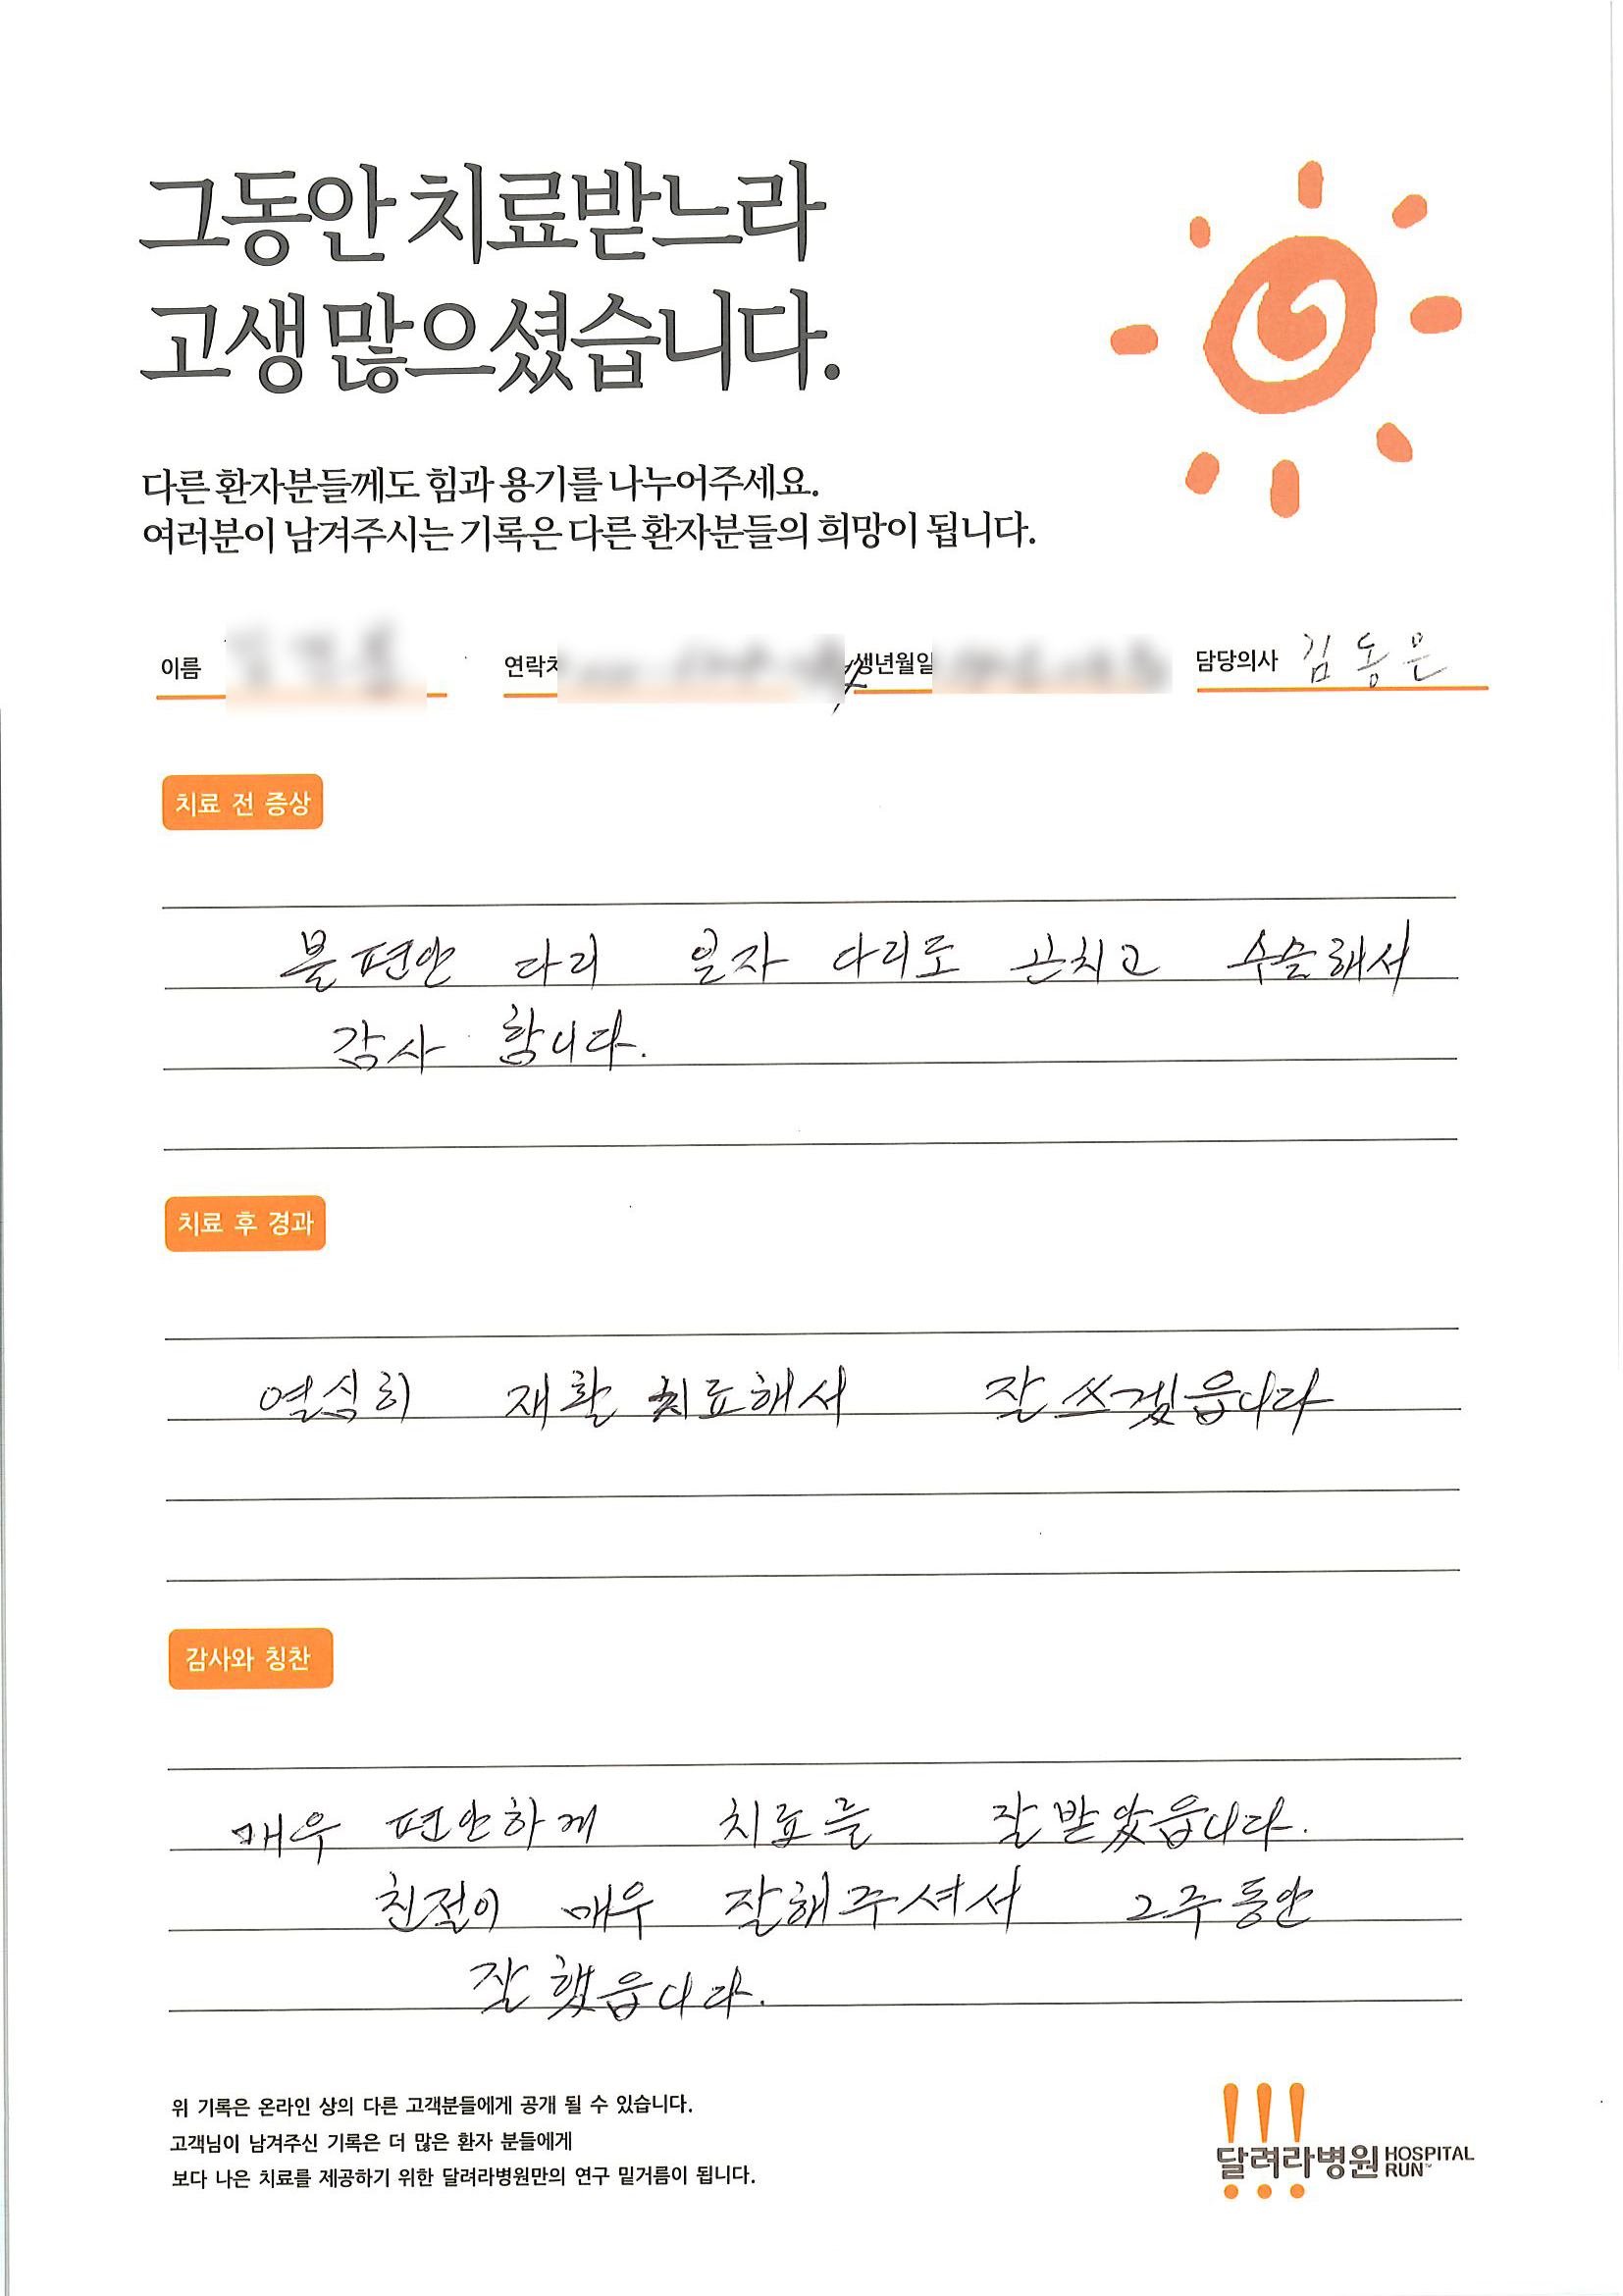 그동안 치료받느라
고생 많으셨습니다.
다른 환자분들께도 힘과 용기를 나누어주세요.
여러분이 남겨주시는 기록은 다른 환자분들의 희망이 됩니다.
이름 연락처 생년월일 담당의사 김동은
치료 전 증상
불편안 다리 일자 다리로 곤치고 수슬해서
감사 합니다.
치료 후 경과
열심히 재활 치료해서 잘 쓰겠읍니다
감사와 칭찬
매우 편안하게 치료를 잘 받았읍니다.
친절이 매우 잘해주셔서 2주동안
잘 했읍니다.
위 기록은 온라인 상의 다른 고객분들에게 공개 될 수 있습니다.
고객님이 남겨주신 기록은 더 많은 환자 분들에게
보다 나은 치료를 제공하기 위한 달려라병원만의 연구 밑거름이 됩니다.
달려라병원 HOSPITAL RUN™